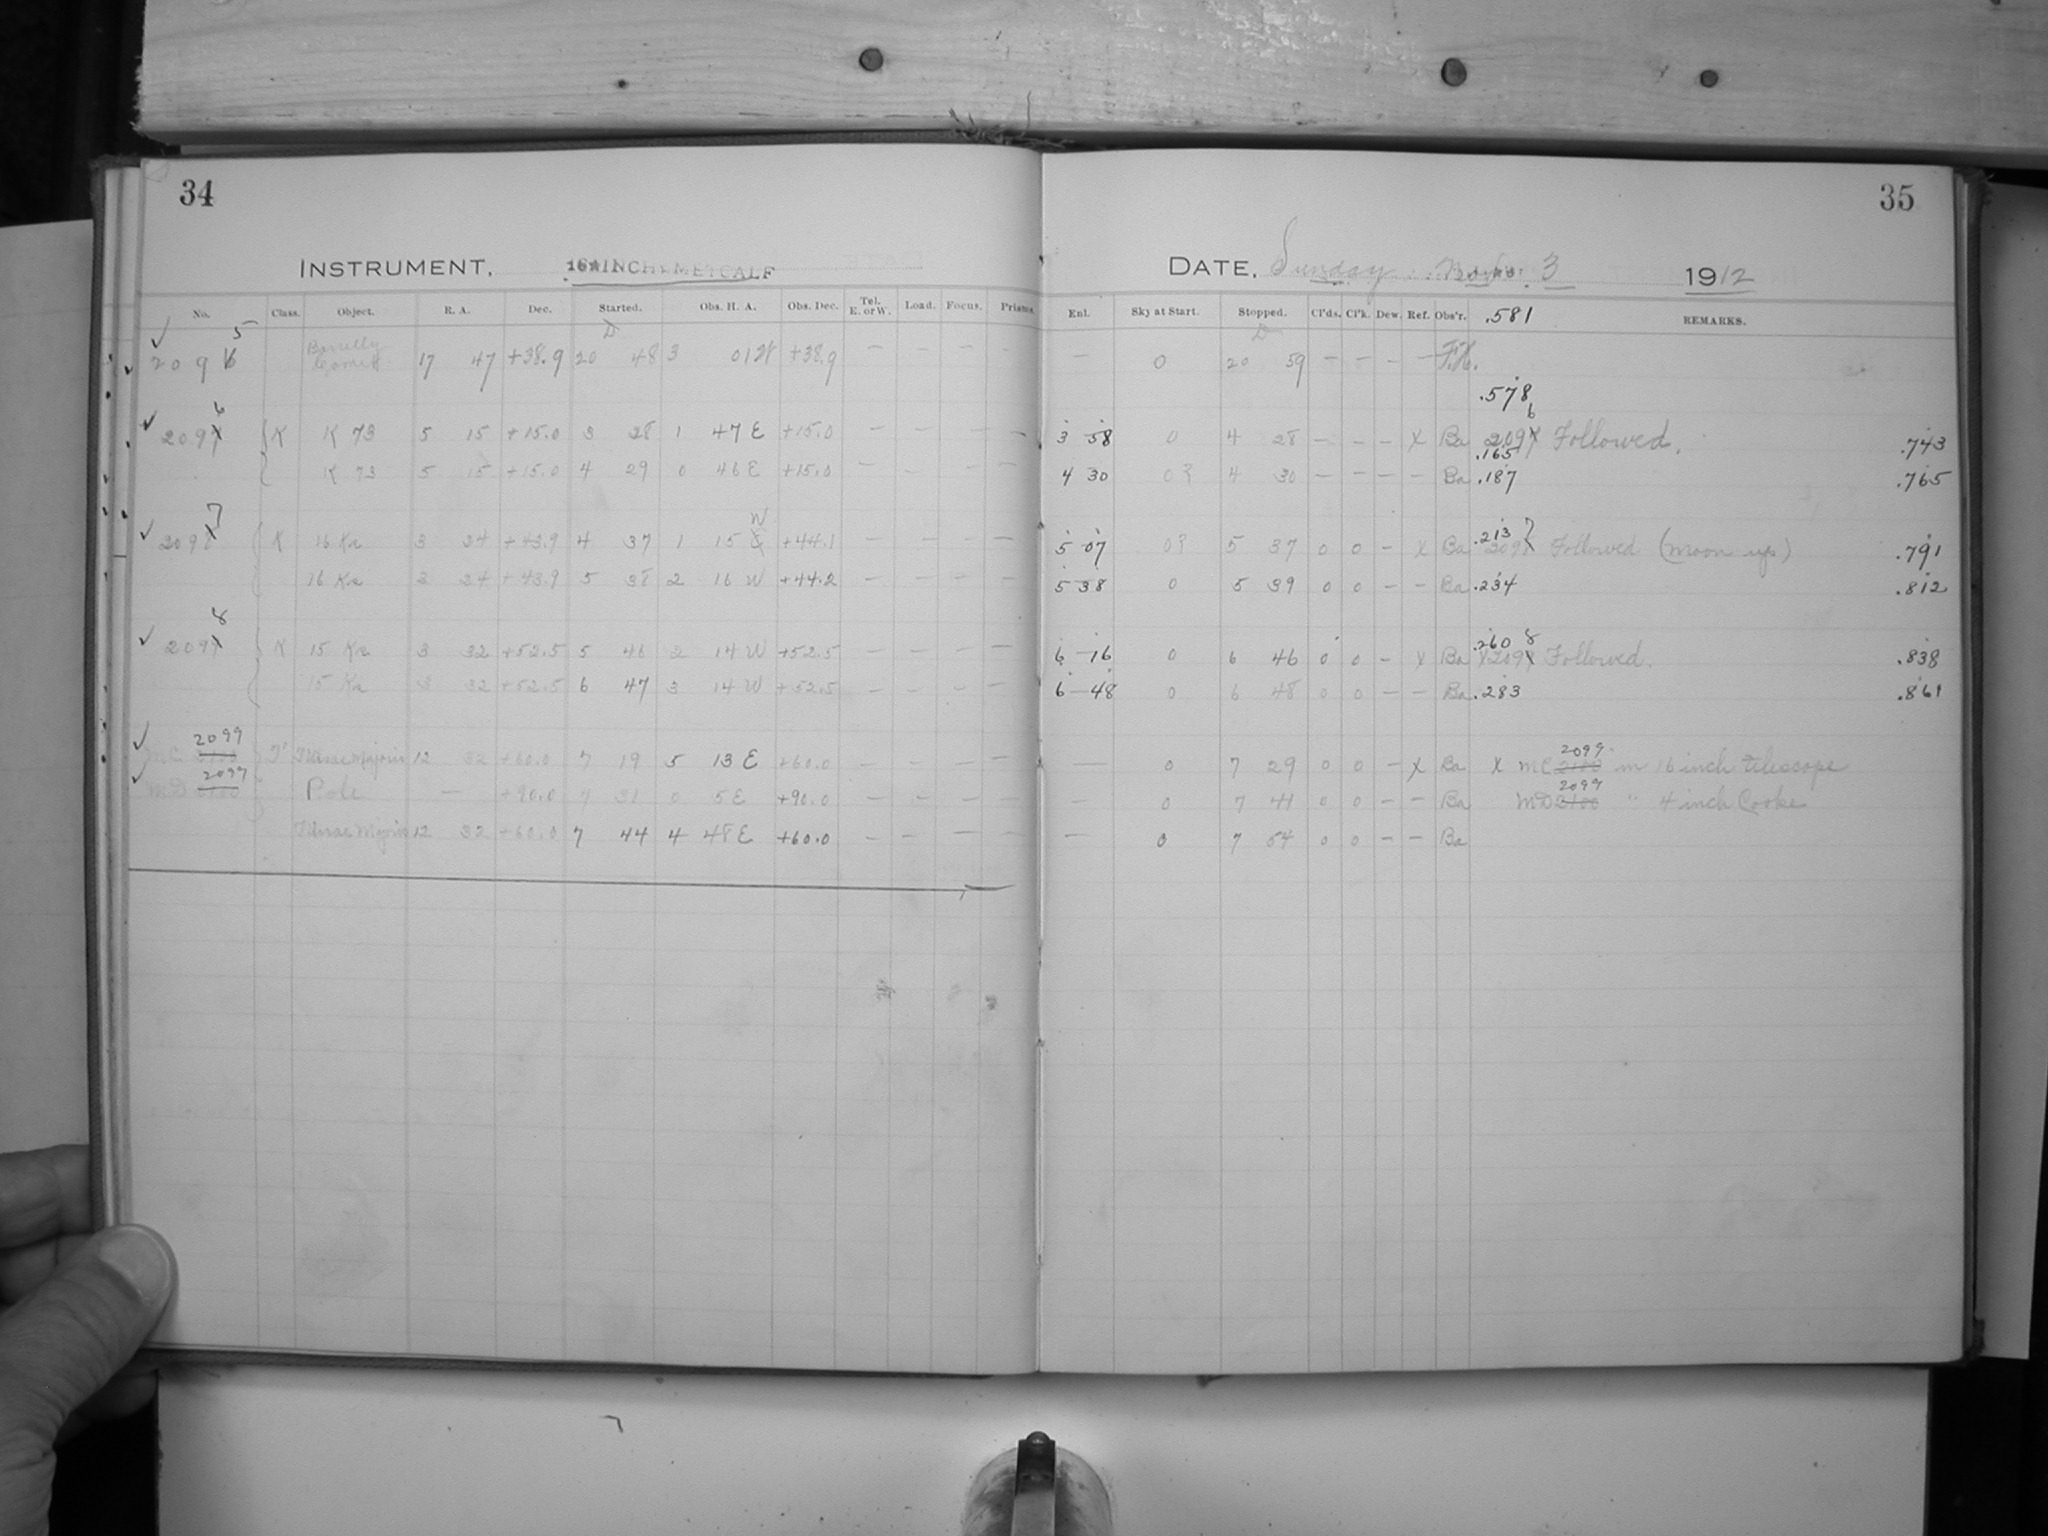 34
INSTRUMENT, 16 INCH METCALF
No. Class. Object. R. A. Dec. Started. Obs. H. A. Obs. Dec. Tel. E. or W. Load. Focus. Prisms
5
D
209 Comet 17 47 +38.9 20 48 3 01 W +38.9 — — — —
6
209 K K 73 5 15 +15.0 3 28 1 47 E +15.0 — — — —
K 73 5 15 +15.0 4 29 0 46 E +15.0 — — — —
7 W
209 K 16 Ka 3 24 +43.9 4 37 1 15 +44.1 — — — —
16 Ka 3 24 +43.9 5 38 2 16 W +44.2 — — — —
8
209 K 15 Ka 3 32 +52.5 5 46 2 14 W +52.5 — — — —
15 Ka 3 32 +52.5 6 47 3 14 W +52.5 — — — —
2099
MC 2100 Ursae Majoris 12 32 +60.0 7 19 5 13 E +60.0 — — — —
2099
MD 2100 Pole — +90.0 7 31 0 5 E +90.0 — — — —
Ursae Majoris 12 32 +60.0 7 44 4 48 E +60.0 — — — —
35
DATE, Sunday Nov. 3 1912
Enl. Sky at Start. Stopped. Cl'ds. Cl'k. Dew. Ref. Obs'r. .581 REMARKS.
D
— 0 20 59 — — — — F.H.
.578
6
3 58 0 4 28 — — — X Ba 209 Followed. .743
.165
4 30 4 30 — — — — Ba .187 .765
.213 7
5 07 5 37 0 0 — X Ba 209 Followed (moon up) .791
5 38 0 5 39 0 0 — — Ba .234 .812
.260 8
6 16 0 6 46 0 0 — X Ba X 209 Followed. .838
6 48 0 6 48 0 0 — — Ba .283 .861
2099
— 0 7 29 0 0 — X Ba X MC 2100 in 16 inch telescope
2099
— 0 7 41 0 0 — — Ba MD 2100 " 4 inch Cooke
— 0 7 54 0 0 — — Ba